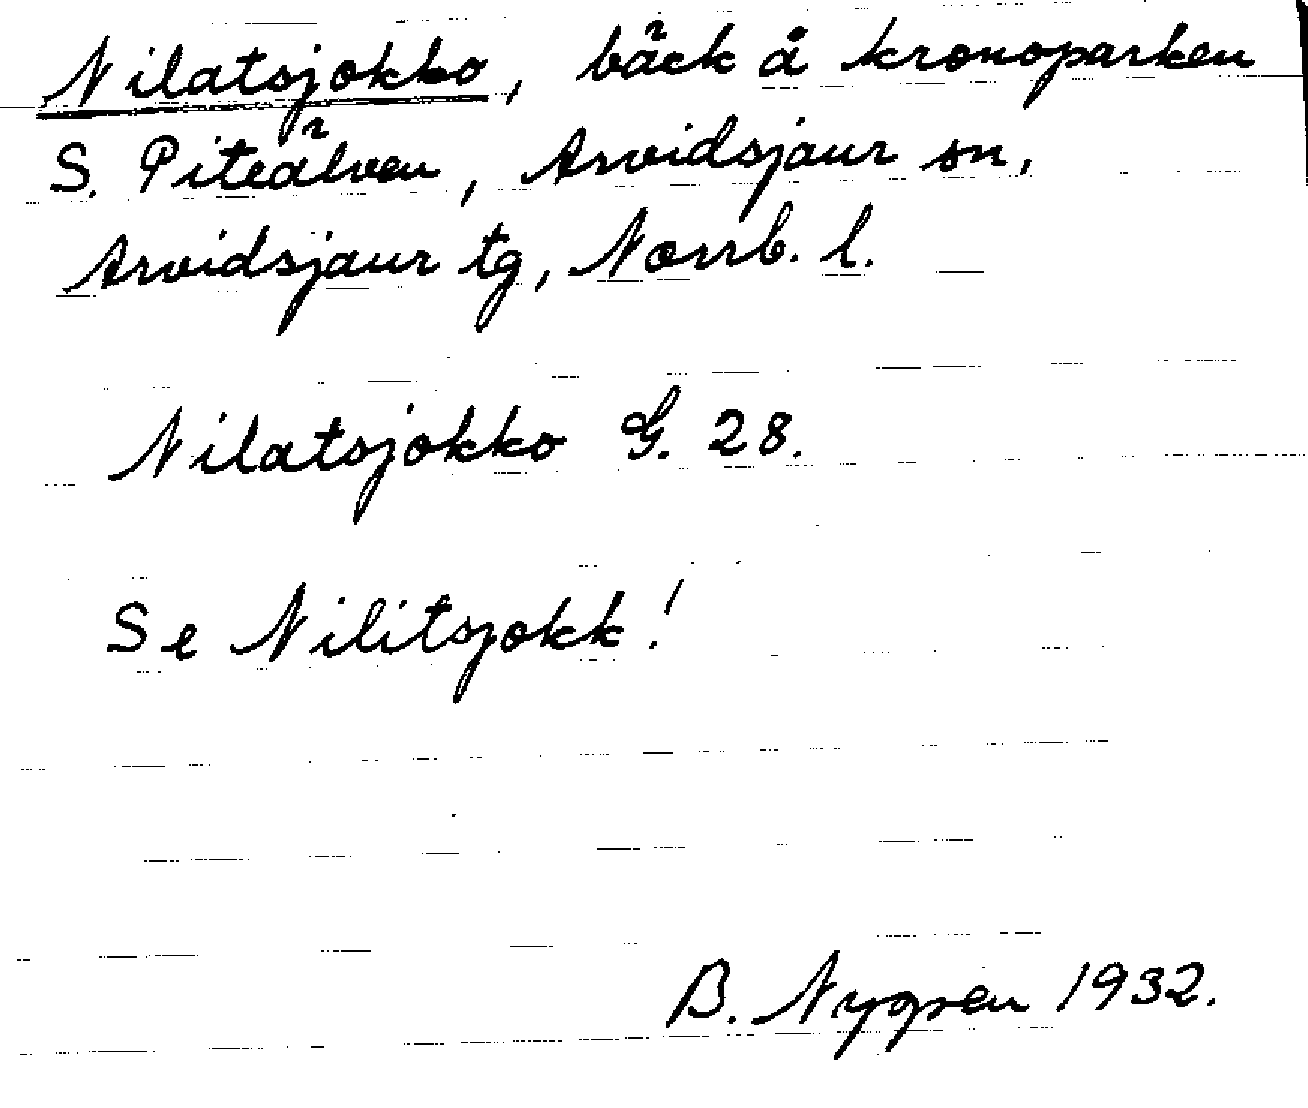 Nilatsjokko, bäck å kronoparken
S. Piteälven, Arvidsjaur sn,
Arvidsjaur tg, Norrb. l.
Nilatsjokko G. 28.
Se Nilitsjokk!
B. Nygren 1932.